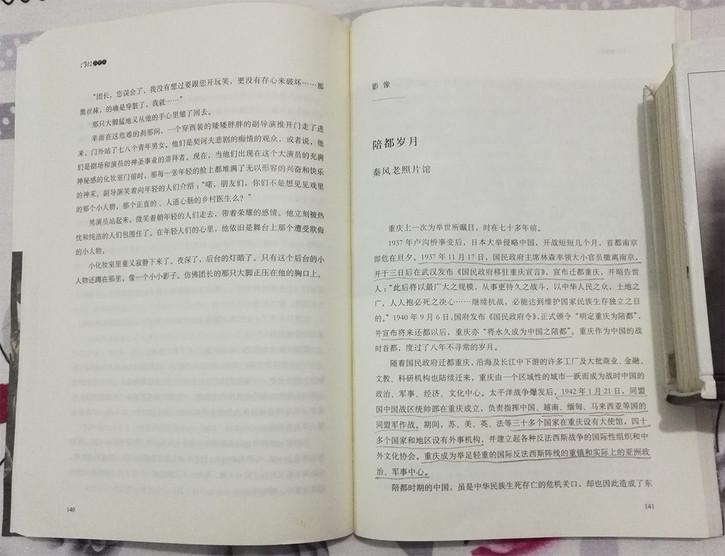 “团长，您误会了，我没有想过要跟您开玩笑，更没有存心来破坏……那
黑丝袜，的确是穿脏了，我就……”
那只大脚猛地又从他的手心里缩了回去。
单面在这危难的刹那间，一个穿西装的矮矮胖胖的副导演推开门走了进
来，门外站了七八个青年男女，他们是契诃夫悲剧的痴情的观众，或者说，他
们是剧场和演员的神圣事业的崇拜者。现在，当他们出现在这个大演员的充满
神秘感的化妆室门前时，那每一张年轻的脸上都堆满了无以形容的兴奋和快乐
的神采。副导演笑着向年轻的人们介绍：“喏，朋友们，你们不是想见见戏里
的那个小人物，那个正直的、人道心肠的乡村医生么？”
男演员站起来，微笑着朝年轻的人们走去，带着荣耀的感情。他立刻被热
忱和纯洁的人们包围住了，在年轻人们的心里，他依旧是舞台上那个遭受欺侮
的小人物。
小化妆室里重又寂静下来了。夜深了，后台的灯暗了。只有这个后台的小
人物还蹲在那里，像一个小小影子。仿佛团长的那只大脚正压在他的胸口上。
140
影像
陪都岁月
秦风老照片馆
重庆上一次为举世所瞩目，时在七十多年前。
1937 年卢沟桥事变后，日本大举侵略中国，开战短短几个月，首都南京
即危在旦夕。1937 年 11 月 17 日，国民政府主席林森率领大小官员撤离南京，
并于三日后在武汉发布《国民政府移驻重庆宣言》，宣布迁都重庆，并昭告世
人：“此后将以最广大之规模，从事更持久之战斗，以中华人民之众，土地之
广，人人抱必死之决心……继续抗战，必能达到维护国家民族生存独立之目
的。”1940 年 9 月 6 日，国府发布《国民政府令》，正式颁令“明定重庆为陪都”，
并宣布将来还都以后，重庆亦“将永久成为中国之陪都”。重庆作为中国的战
时首都，度过了八年不寻常的岁月。
随着国民政府迁都重庆，沿海及长江中下游的许多工厂及大批商业、金融、
文教、科研机构也陆续迁来，重庆由一个区域性的城市一跃而成为战时中国的
政治、军事、经济、文化中心。太平洋战争爆发后，1942 年 1 月 21 日，同盟
国中国战区统帅部在重庆成立，负责指挥中国、越南、缅甸、马来西亚等国的
同盟军作战。期间，苏、美、英、法等三十多个国家在重庆设有大使馆，四十
多个国家和地区设有外事机构，并建立起各种反法西斯战争的国际性组织和中
外文化协会。重庆成为举足轻重的国际反法西斯阵线的重镇和实际上的亚洲政
治、军事中心。
陪都时期的中国，虽是中华民族生死存亡的危机关口，却也因此造成了东
141